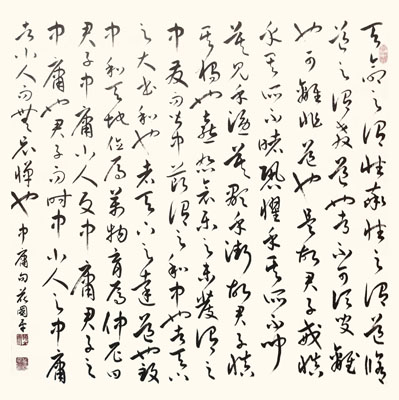 天命之謂性率性之謂道修
道之謂教道也者不可須臾離
也可離非道也是故君子戒慎
乎其所不睹恐懼乎其所不聞
莫見乎隱莫顯乎微故君子慎
其獨也喜怒哀樂之未發謂之
中發而皆中節謂之和中也者天下
之大本也和也者天下之達道也致
中和天地位焉萬物育焉仲尼曰
君子中庸小人反中庸君子之
中庸也君子而時中小人之中庸
者小人而無忌憚也 中庸句